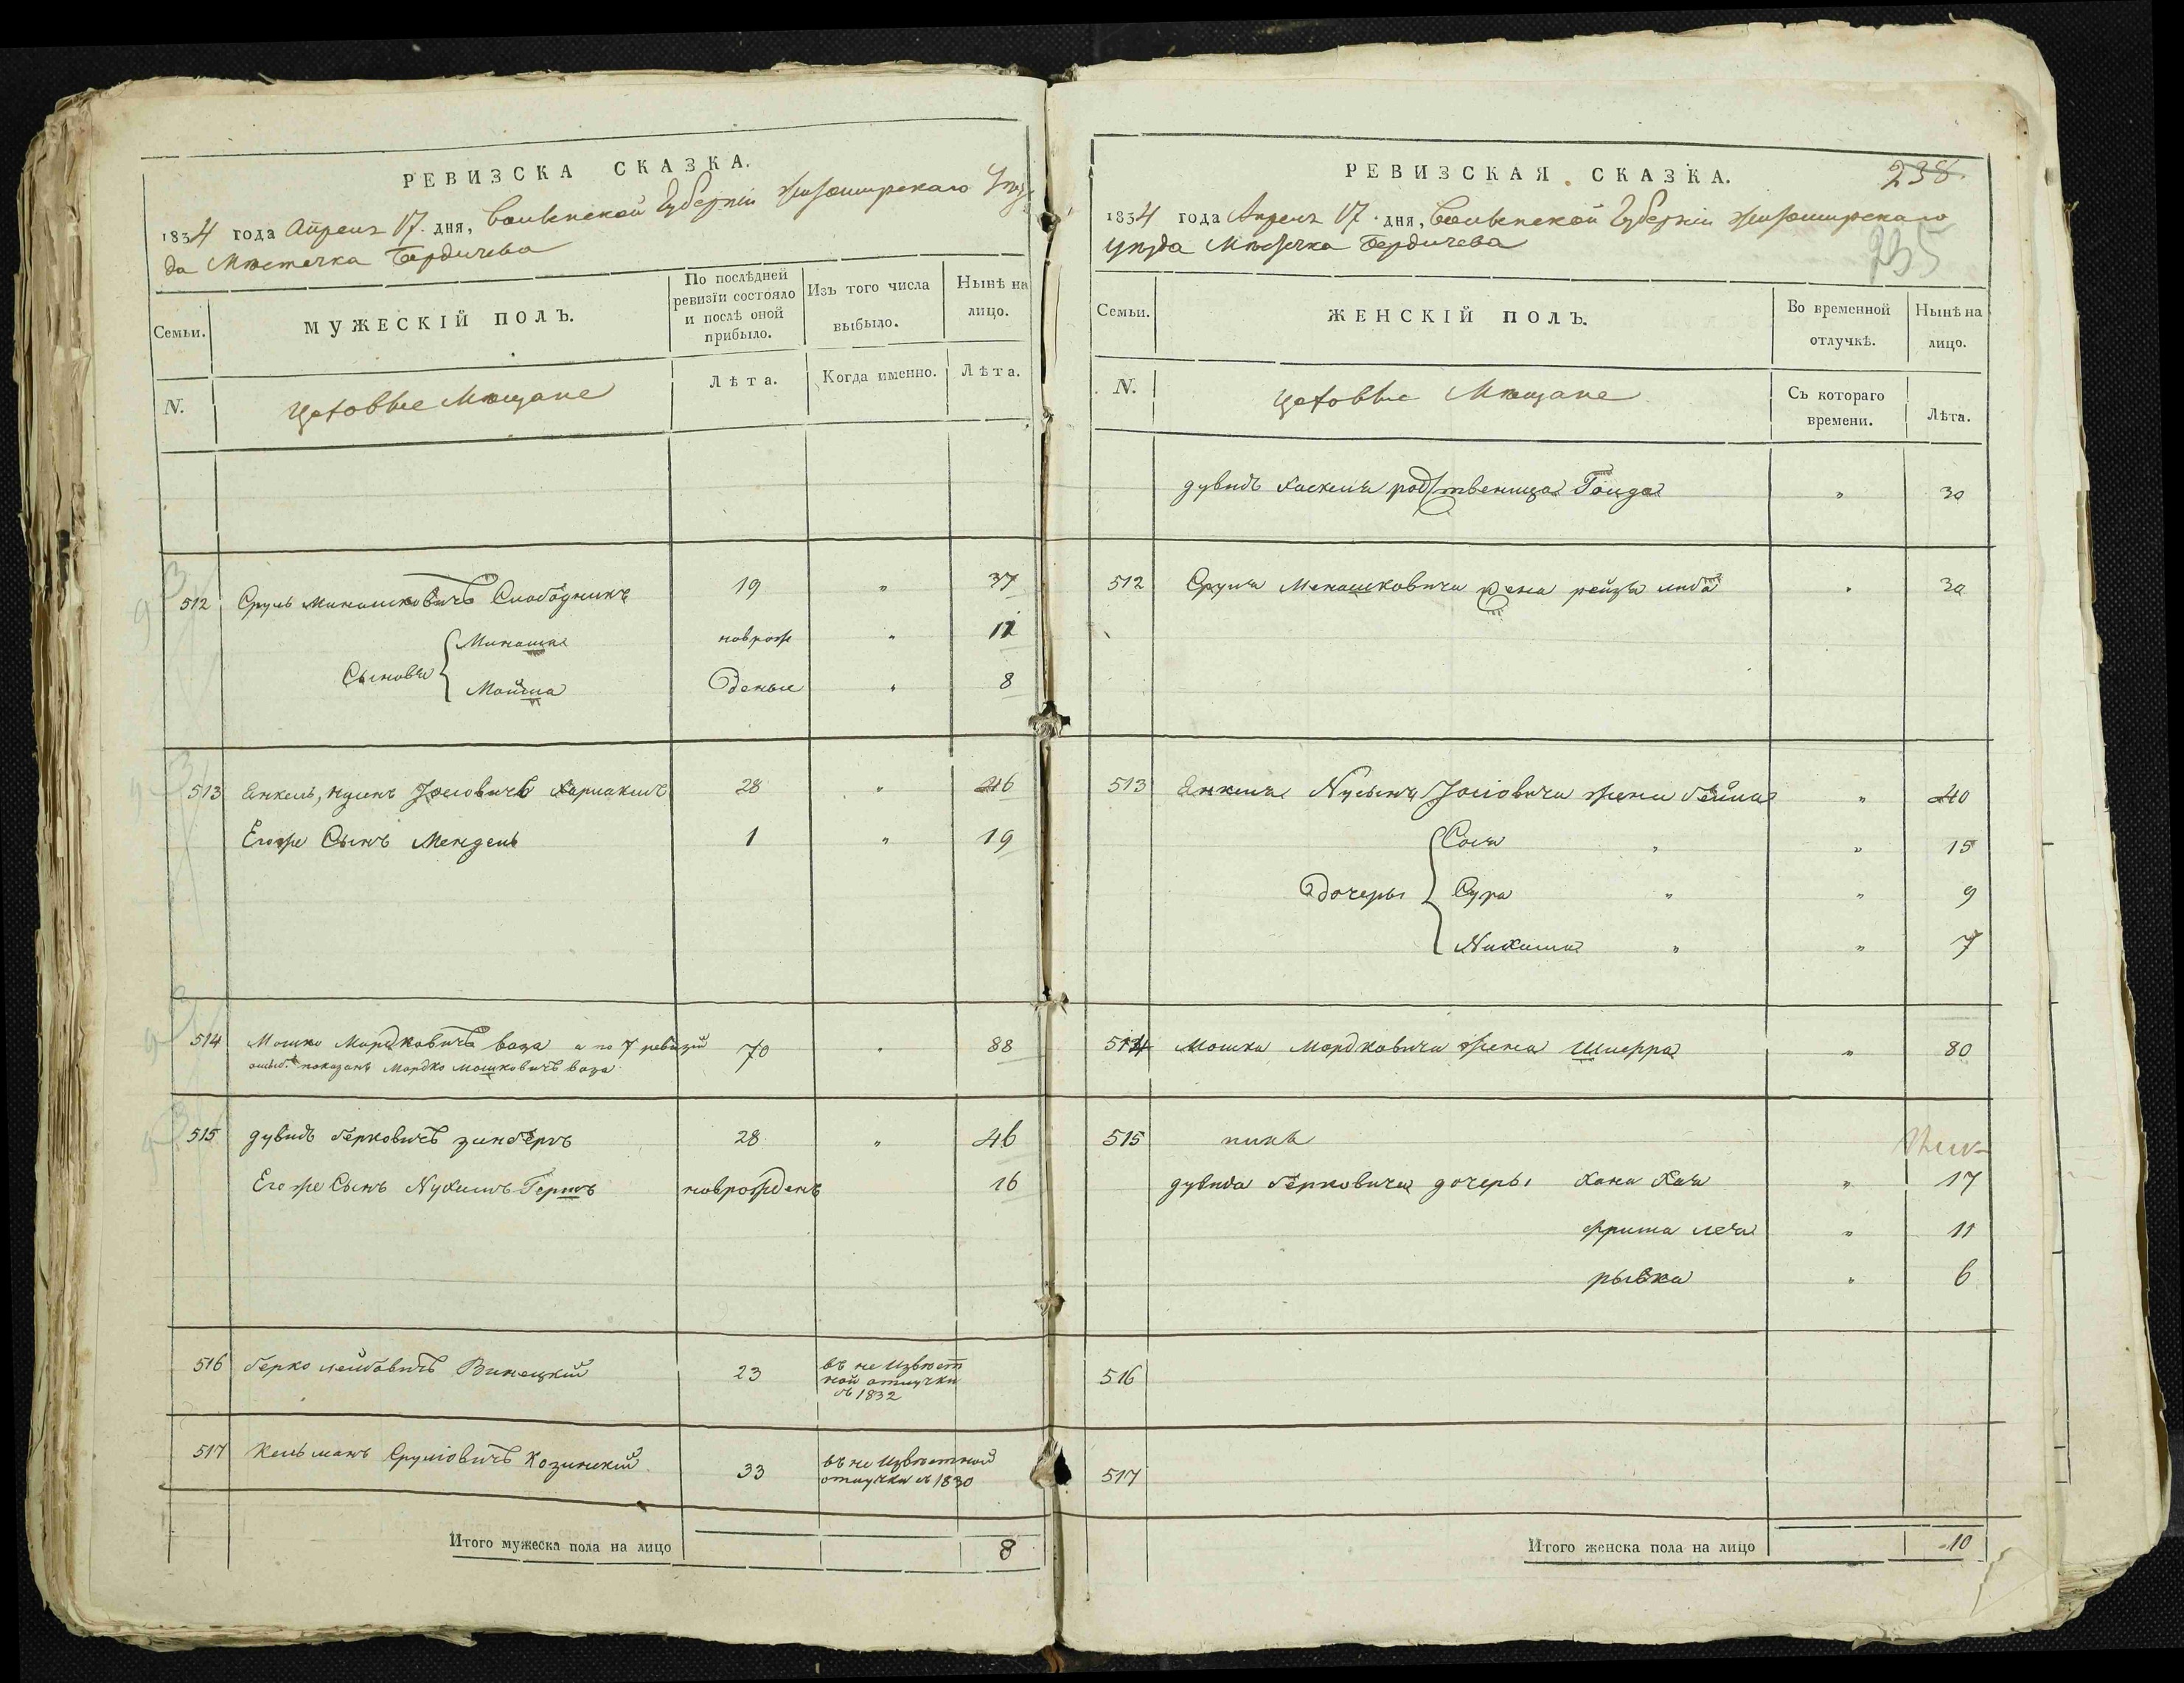 РЕВИЗСКА СКАЗКА.
1834 года Апреля 17. дня, Волынской Губерніи Житомирскаго Уѣз
да Мѣстечка Бердичева
Семьи.
МУЖЕСКІЙ ПОЛЪ.
По послѣдней ревизіи состояло и послѣ оной прибыло.
Изъ того числа выбыло.
Нынѣ на лицо.
N.
Цеховые Мещане
Лѣта.
Когда именно.
Лѣта.
512 Сруль Минашковичъ Слободникъ 19 " 37
Сыновья Минашка новрож " 11
Мойша деные " 8
513 Янкель, Нусенъ Іосіовичъ 28 " 46
Егоже Сынъ Мендель 1 " 19
514 Мошко Мордковичъ ваза а по 7 ревизіи 70 " 88
ошыб. показанъ Мордко Мошковичъ ваза
515 дувидъ берковичъ зинберъ 28 " 46
Егоже Сынъ Нухимъ Гершъ новрожденъ 16
516 берко лейбовичъ Винецкій 23 въ не Извѣст
ной отлучки
съ 1832
517 Кельманъ Сруліовичъ Козинскій 33 въ не Извѣстной
отлучки съ 1830
Итого мужеска пола на лицо 8
РЕВИЗСКАЯ СКАЗКА.
238
1834 года Апреля 17. дня, Волынской Губерніи Житомирскаго
уѣзда Мѣстечка Бердичева
235
Семьи.
ЖЕНСКІЙ ПОЛЪ.
Во временной отлучкѣ.
Нынѣ на лицо.
N.
Цеховые Мещане
Съ котораго времени.
Лѣта.
дувидъ Хаскеля родственица Голда " 30
512 Сруля Менашковича жена рейзя либа " 30
513 Янкеля Нусынъ Іосіовича жена бейла " 40
дочеры Сося " " 15
Сура " " 9
" " 7
514 Мошка Мордковича жена Шифра " 80
515
дувида берковича дочеры Хана Хая " 17
фрима лея " 11
рывка " 6
516
517
Итого женска пола на лицо 10